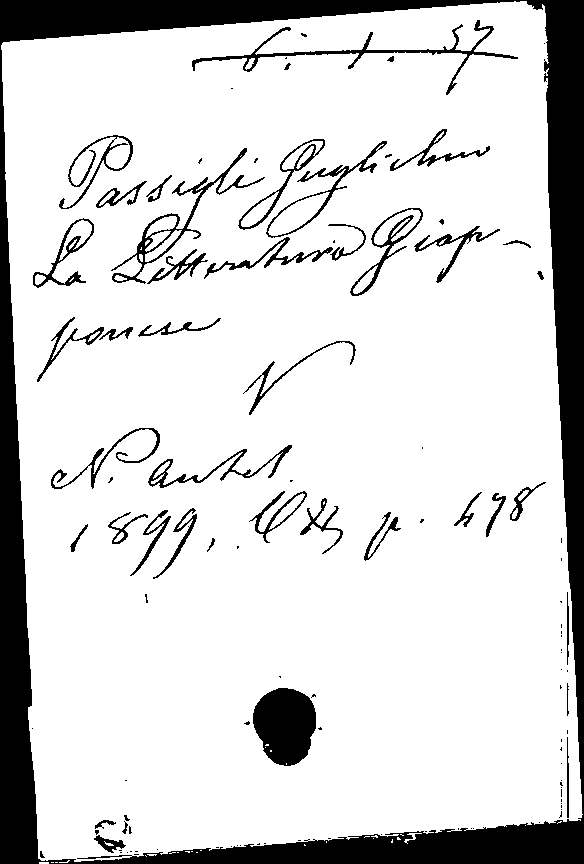 6. 1. 57
Passigli Guglielmo
La Litteratura Giap-
ponese
V
N. Antol.
1899, p. 478